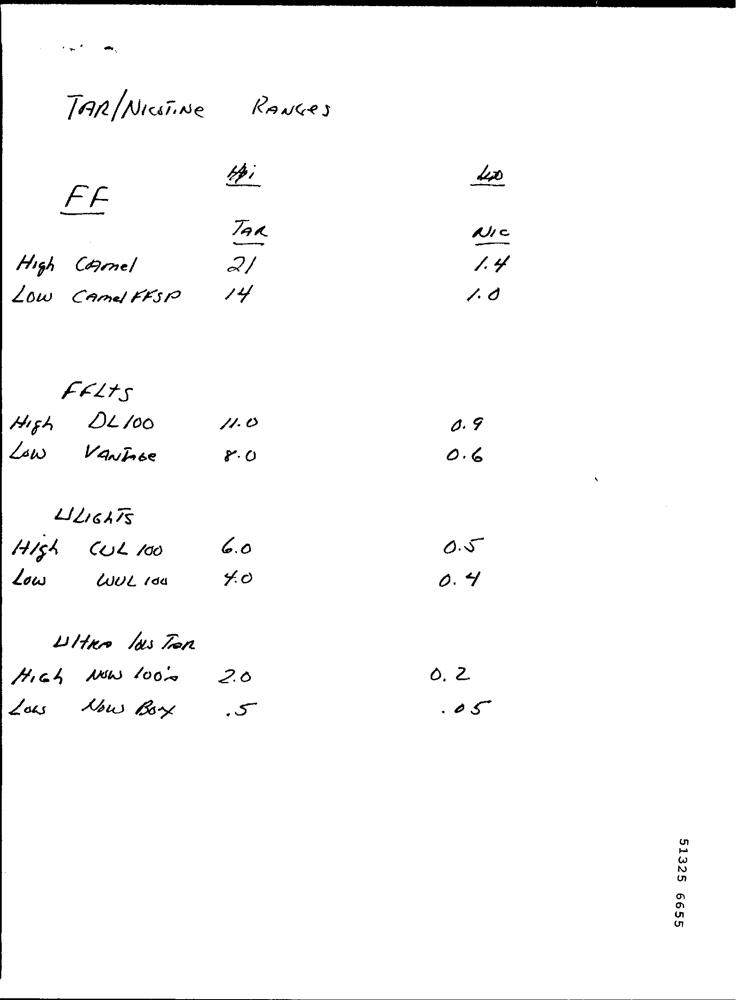 TAR/NICOTINE RANGES
FF
TAR NIC
High Camel 21 1.4
Low Camel FFSP 14 1.0
FFLTS
High DL100 11.0 0.9
Low VANTAGE 8.0 0.6
ULIGHTS
High CUL 100 6.0 0.5
Low WUL 100 4.0 0.4
Ultra low Tar
High Now 100's 2.0 0.2
Low Now Box .5 .05
51325 6655